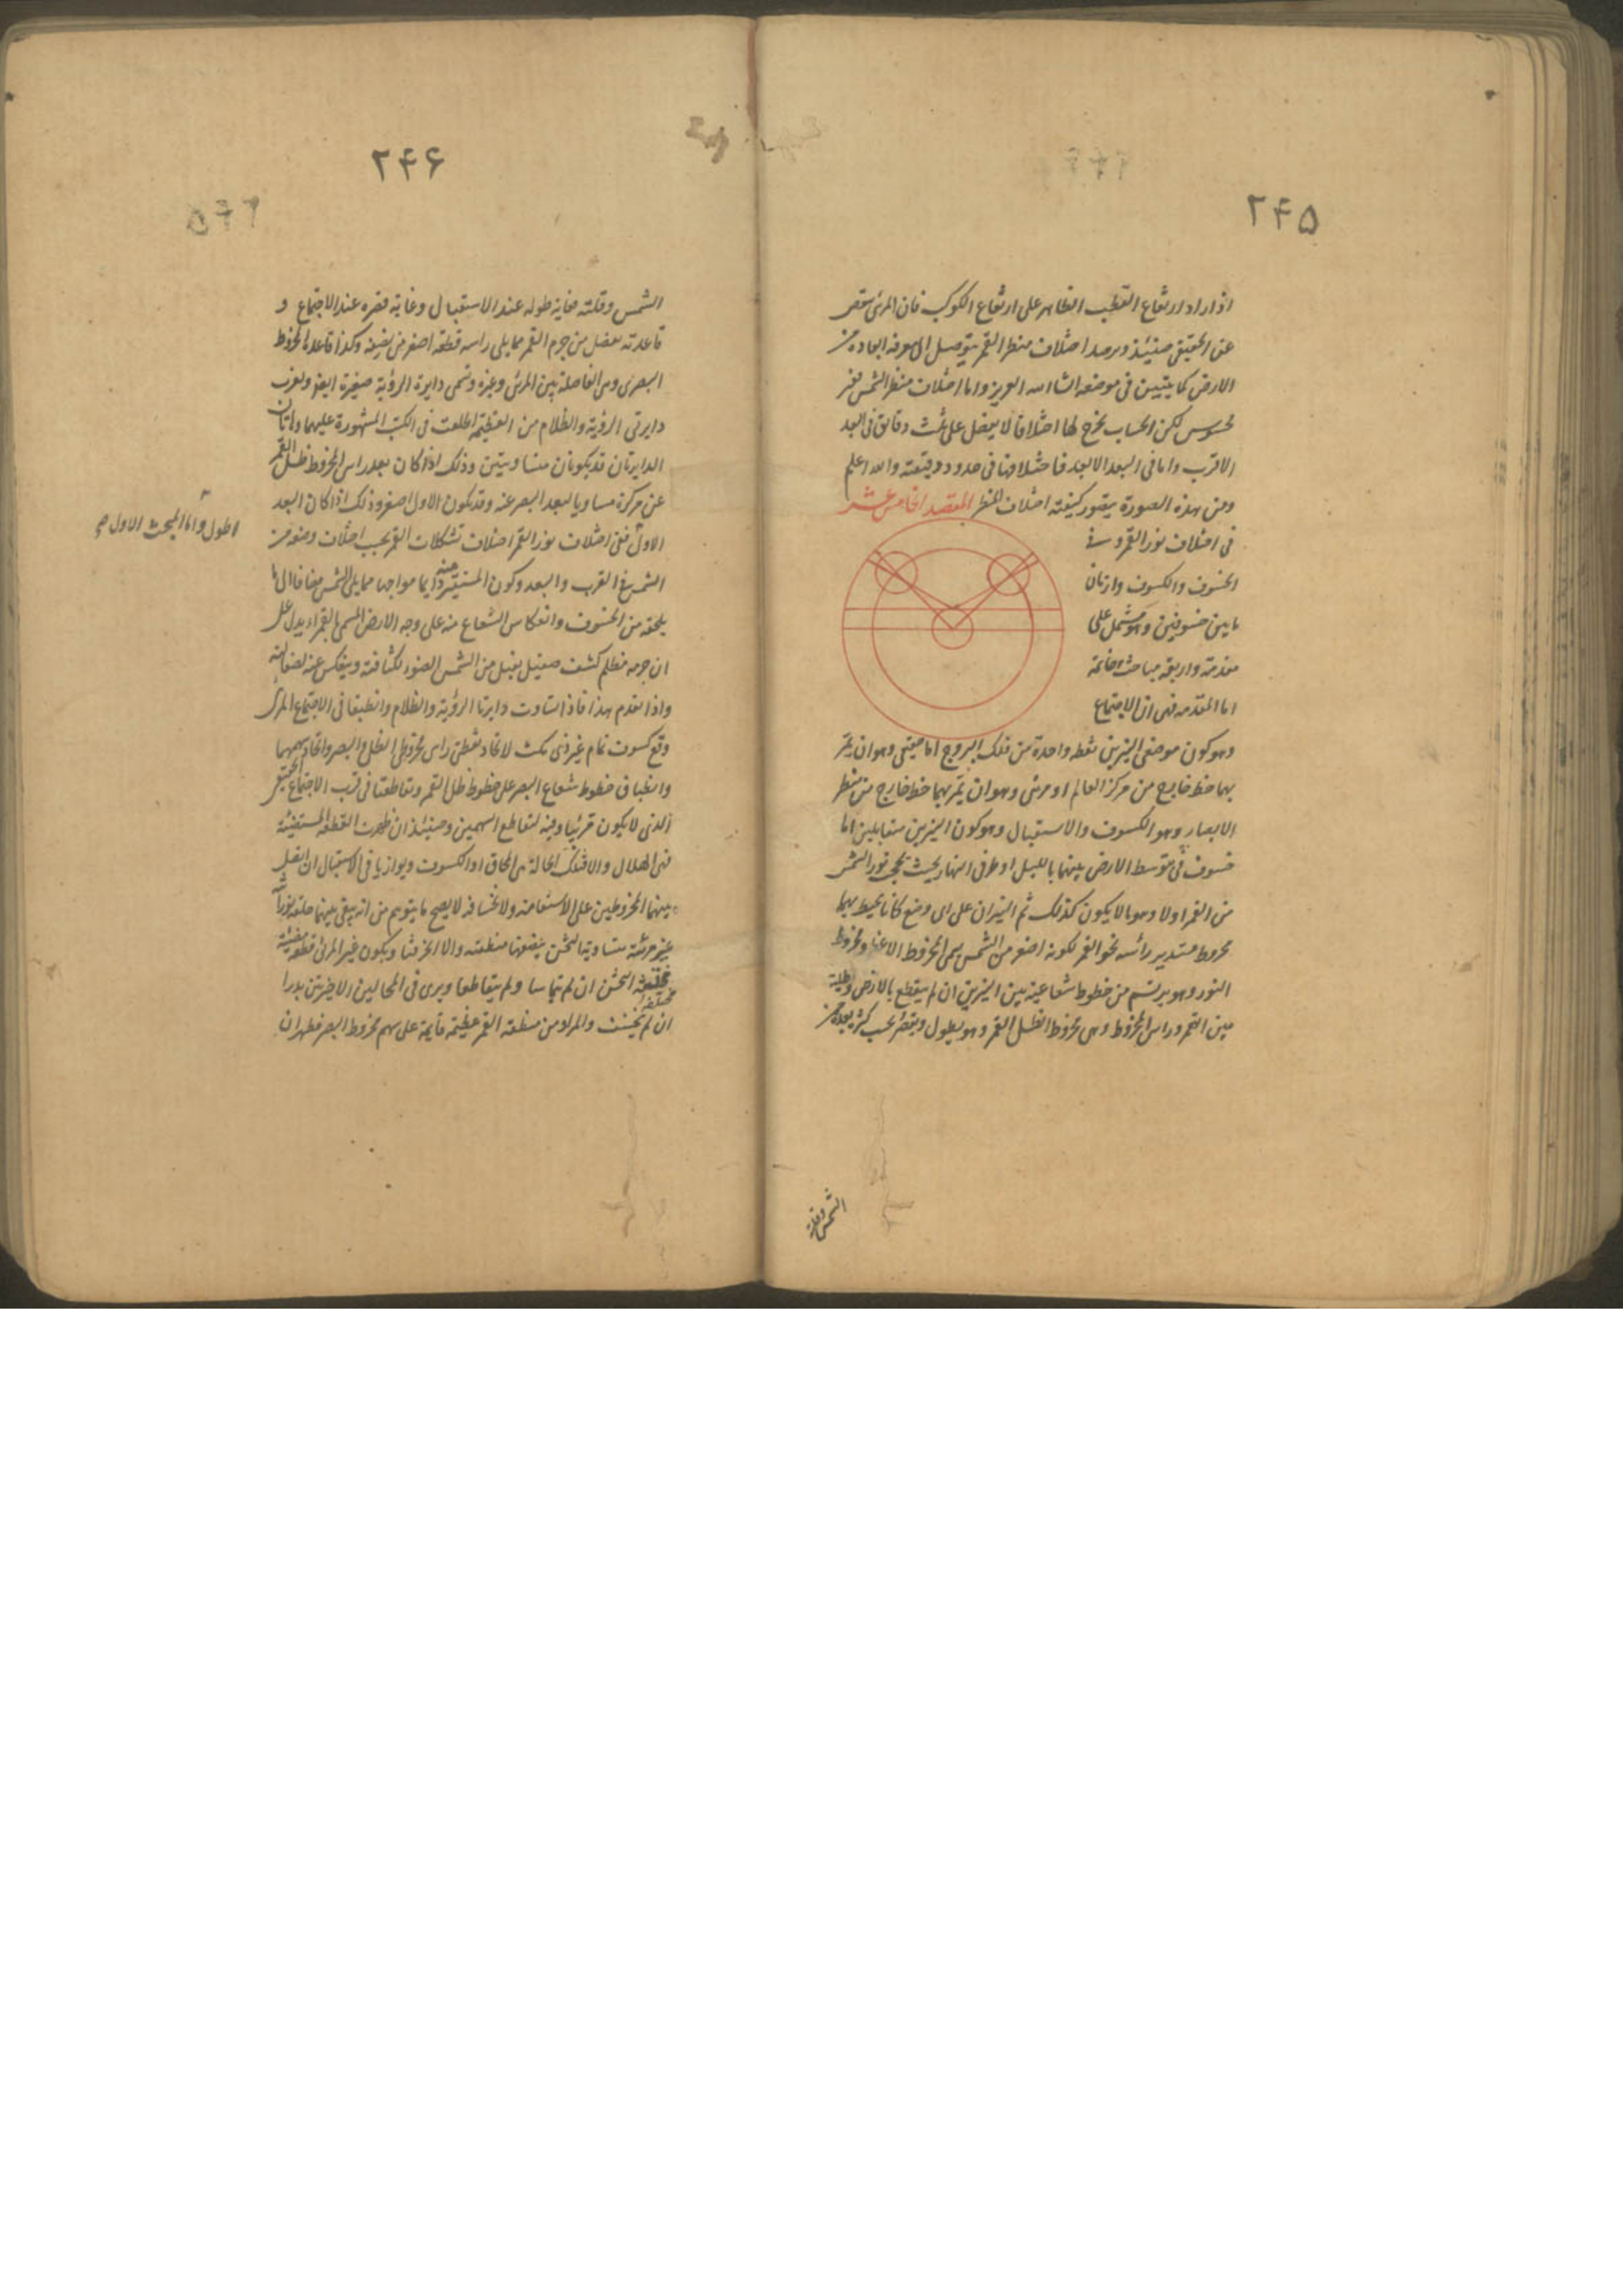 ٢٤٥
اذا زاد ارتفاع القطب الظاهر على ارتفاع الكوكب فان المرئى ينقص
عن الحقيقى حينئذ وبرصد اختلاف منظر القمر يتوصل الى معرفة ابعاده من
الارض كما يتبين فى موضعه انشاء الله العزيز واما اختلاف منظر الشمس فغير
محسوس لكن الحساب يخرج لها اختلافا لا يفضل على ثلث دقايق فى البعد
الاقرب واما فى البعد الابعد فاختلافها فى حدود دقيقته والله اعلم
ومن هذه الصورة يتصور كيفية اختلاف المنظر المقصد الخامس عشر
فى اختلاف نور القمر وفى
الخسوف والكسوف وازمان
ما بين خسوفين وهو مشتمل على
مقدمة واربعة مباحث وخاتمة
اما المقدمه فهى ان الاجتماع
وهو كون موضعى النيرين نقطه واحدة من فلك البروج اما حقيقى وهو ان يمر
بهما خط خارج من مركز العالم او مرئى وهو ان يمر بهما خط خارج من منظر
الابصار وهو الكسوف والاستقبال وهو كون النيرين متقابلين اما
خسوف فى توسط الارض بينهما بالليل او طرفى النهار بحيث يحجب نور الشمس
من القمر اولا وهو ما لا يكون كذلك ثم النيران على اى وضع كانا يحيط بهما
مخروط مستدير رأسه نحو القمر لكونه اصغر من الشمس يسمى المخروط الاعظم ومخروط
النور وهو يرتسم من خطوط شعاعية بين النيرين ان لم ينقطع بالارض وظله
بين القمر وراس المخروط وهى مخروط الظل القمر وهو يطول ويقصر بحسب كثرة بعده من
الشمس وقلته
٢٤٦
الشمس وقلته فغاية طوله عند الاستقبال وغاية قصره عند الاجتماع و
قاعدته تفصل من جرم القمر مما يلى راسه قطعة اصغر من نصفه وكذا قاعدة المخروط
البصرى وهى الفاصلة بين المرئى وغيره وتسمى دايرة الرؤية صغيرة ايضا ولقرب
دايرتى الرؤية والظلام من العظيمة اطلقت فى الكتب المشهورة عليهما وهاتان
الدايرتان قد يكونان متساويتين وذلك اذا كان بعد راس المخروط ظل القمر
عن مركزه مساويا لبعد البصر عنه وقد يكون الاول اصغر وذلك اذا كان البعد
اطول واما المبحث الاول صح
الاول ففى اختلاف نور القمر اختلاف تشكلات القمر بحسب اختلاف وضعه من
الشمس فى القرب والبعد وكون المستنير منه دايما مواجها مما يلى الشمس مضافا الى ما
يلحقه من الخسوف وانعكاس الشعاع منه على وجه الارض المسمى بالقمراء يدل على
ان جرمه مظلم كثيف صقيل يقبل من الشمس الضوء لكثافته وينعكس عنه لصقالته
واذا تقدم هذا فاذا تساوت دايرتا الرؤية والظلام وانطبقتا فى الاجتماع المرئى
وقع كسوف تام غير ذى مكث لاتحاد نقطتى راس مخروطى الظل والبصر واتحاد سهميهما
وانطباق خطوط شعاع البصر على خطوط ظل القمر وتقاطعتا فى قرب الاجتماع الحقيقى
الذى لا يكون مرئيا وفيه لتقاطع السهمين وحينئذ ان ظهرت القطعه المستضيئة
فهى الهلال والا فتلك الحالة هى المحاق او الكسوف ويوازيا فى الاستقبال ان اتصل
بينهما المخروطين على الاستقامة ولانخسافه لا يصح ما يتوهم من انه يبقى بينهما حلقة نورانية
غير مرئية متساوية الثخن ينصفها منطقته والا انحرفتا ويكون غير المرئى قطعه مضيئة
مختلفة الثخن ان لم يتماسا ولم يتقاطعا ويرى فى الحالين الاخيرتين بدرا
ان لم ينخسف والمراد من منطقة القمر عظيمة قايمة على سهم مخروط البصر فظهر ان